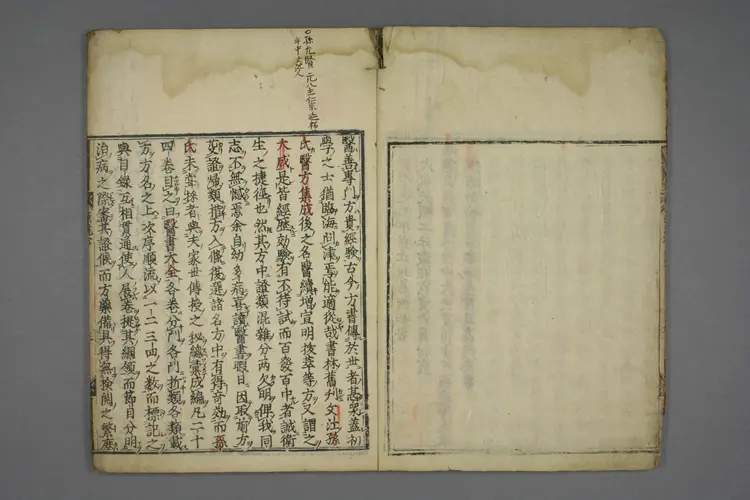 孫允賢元
醫善專門方貴經驗古今方書傳於世者甚衆蓋初
學之士猶臨海問津焉能適從哉書林舊刊文江孫
氏醫方集成後之名醫續增宣明拔萃等方又謂之
大成是皆經歷効驗有不待試而百發百中者誠衛
生之捷徑也然其方中證類混雜分兩欠明俾我同
志不無憾焉余自幼多病喜讀醫書暇日因取前方
證歸類措方入條復選諸名方中有得奇効而孫
氏未嘗採者與夫家世傳授之秘總彙成編凡二十
四卷目之曰醫書大全各卷分門各門析類各類載
方方名之上次序順流以一二三四之數而標記之
與目錄互相貫通使人展卷提其綱領而節目分明
治病之際審其證候而方藥備具得無撿閱之繁庶